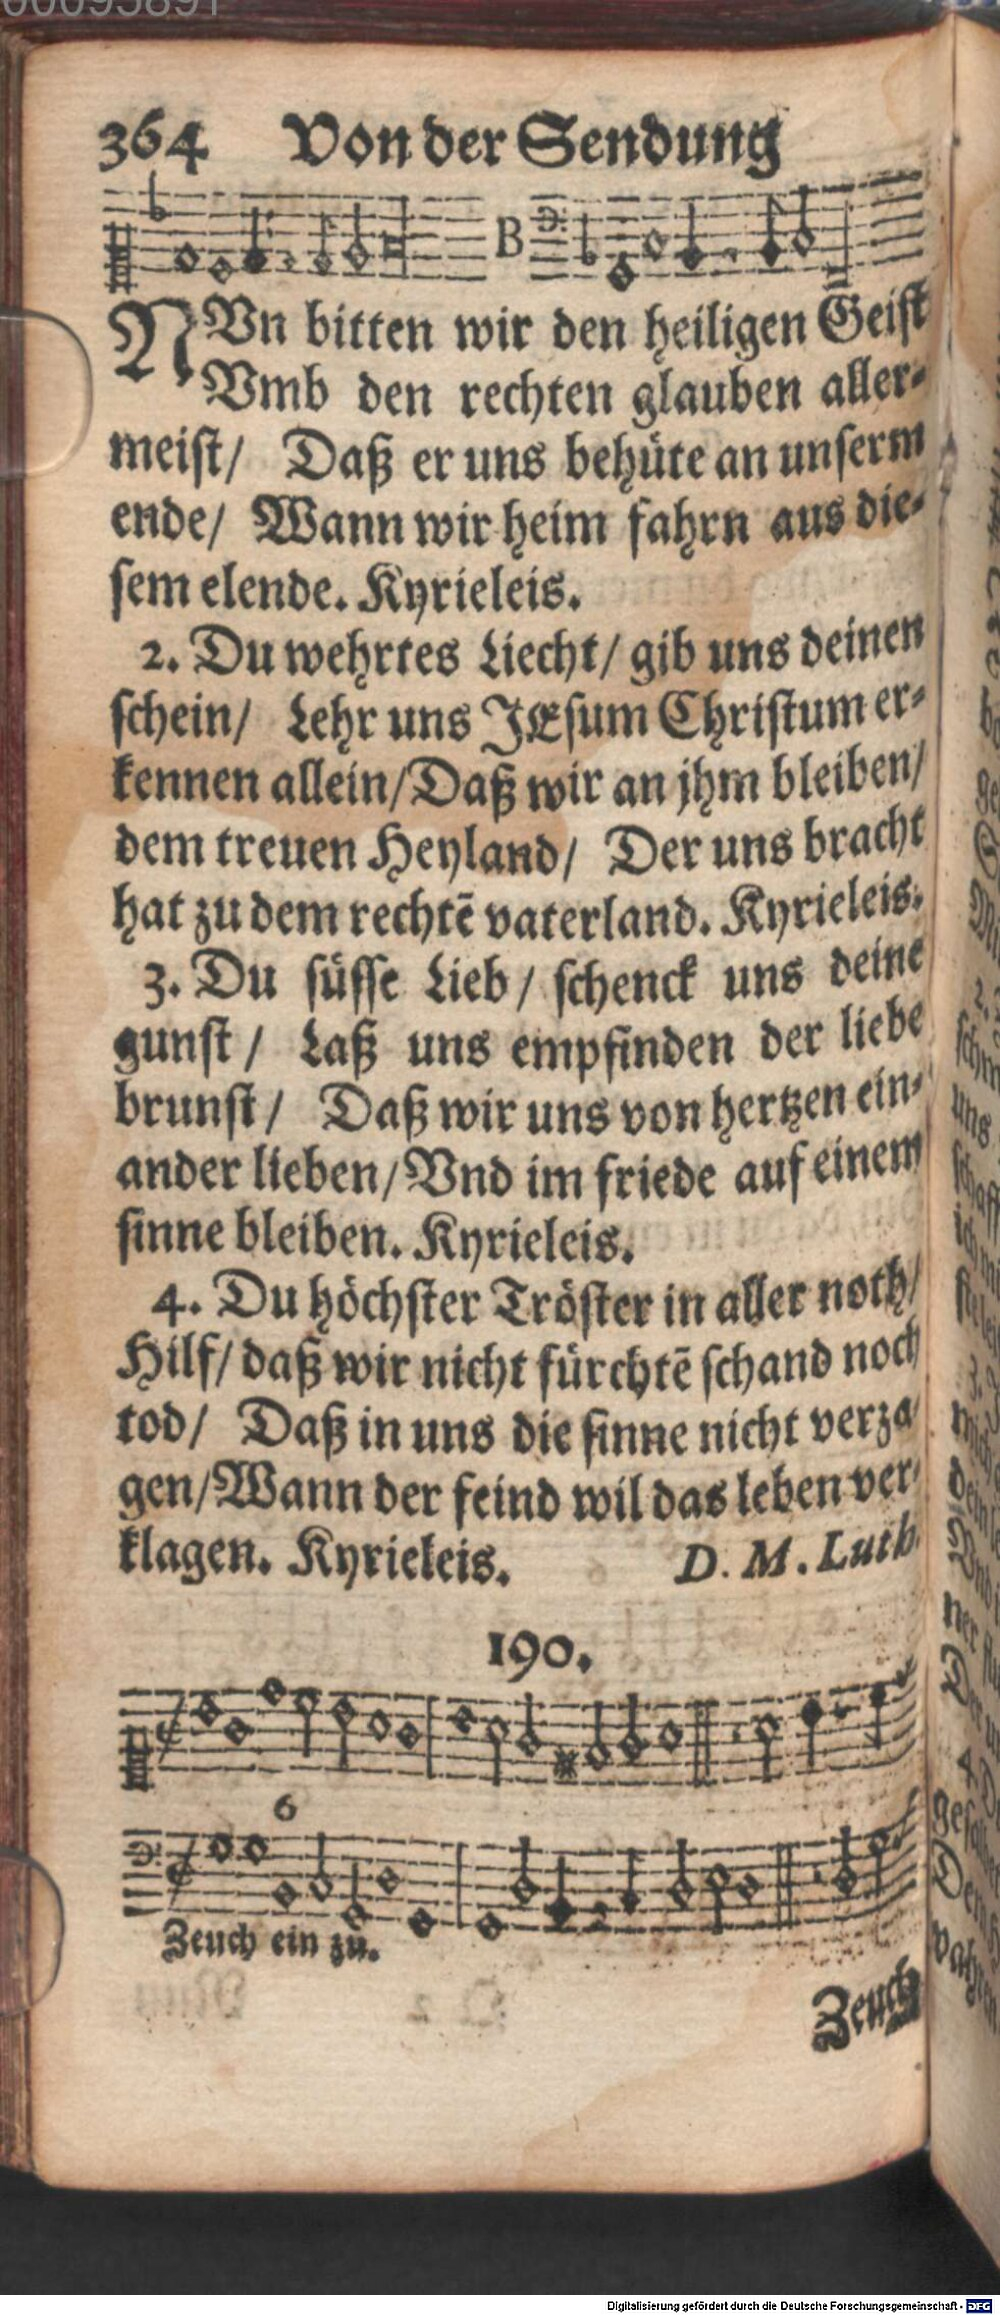 00095891
364 Von der Sendung
B
NVn bitten wir den heiligen Geist
Vmb den rechten glauben aller-
meist/ Daß er uns behüte an unserm
ende/ Wann wir heim fahrn aus die-
sem elende. Kyrieleis.
2. Du wehrtes Liecht/ gib uns deinen
schein/ Lehr uns JEsum Christum er-
kennen allein/ Daß wir an jhm bleiben/
dem treuen Heyland/ Der uns bracht
hat zu dem rechtẽ vaterland. Kyrieleis.
3. Du süsse Lieb/ schenck uns deine
gunst/ Laß uns empfinden der liebe
brunst/ Daß wir uns von hertzen ein-
ander lieben/ Vnd im friede auf einem
sinne bleiben. Kyrieleis.
4. Du höchster Tröster in aller noth/
Hilf/ daß wir nicht fürchtẽ schand noch
tod/ Daß in uns die sinne nicht verza-
gen/ Wann der feind wil das leben ver-
klagen. Kyrieleis. D. M. Luth.
190.
6
Zeuch ein zu.
Zeuch
Digitalisierung gefördert durch die Deutsche Forschungsgemeinschaft - DFG